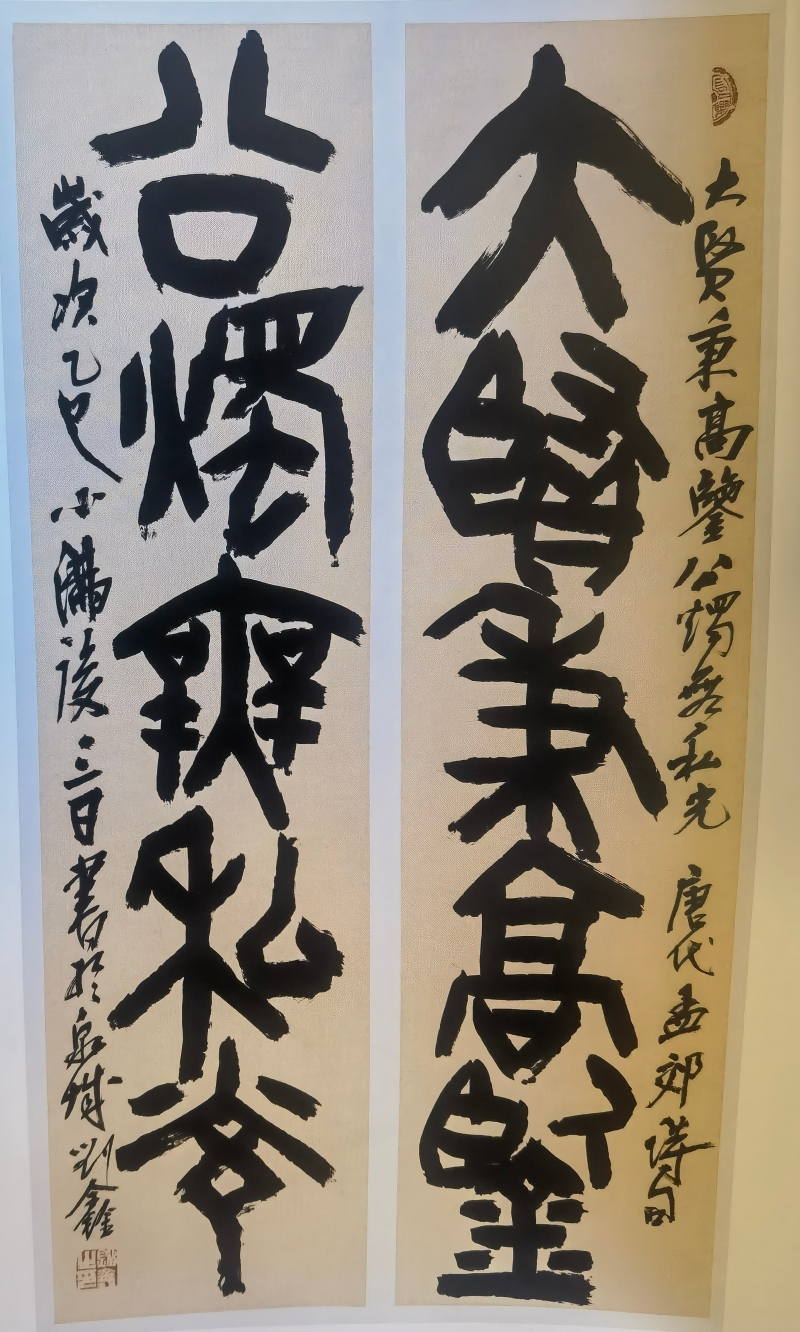 大賢秉高鑒公燭無私光 唐代孟郊詩句
大賢秉高鑒
公燭無私光
歲次乙巳小滿後三日書於泉城劉鑫